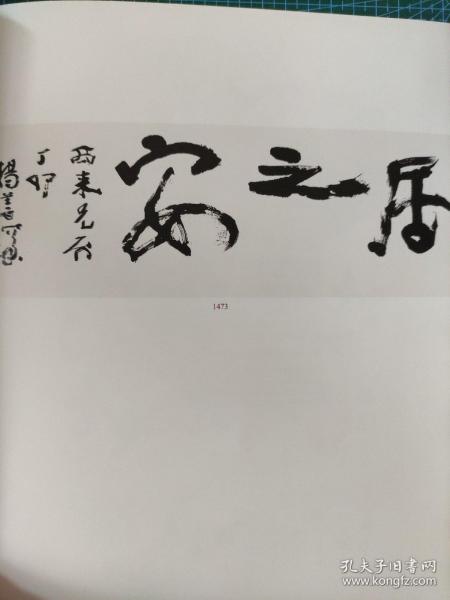 居之安
西来兄属
丁卯
楊善深
1473
孔夫子旧书网
www.kongfz.com